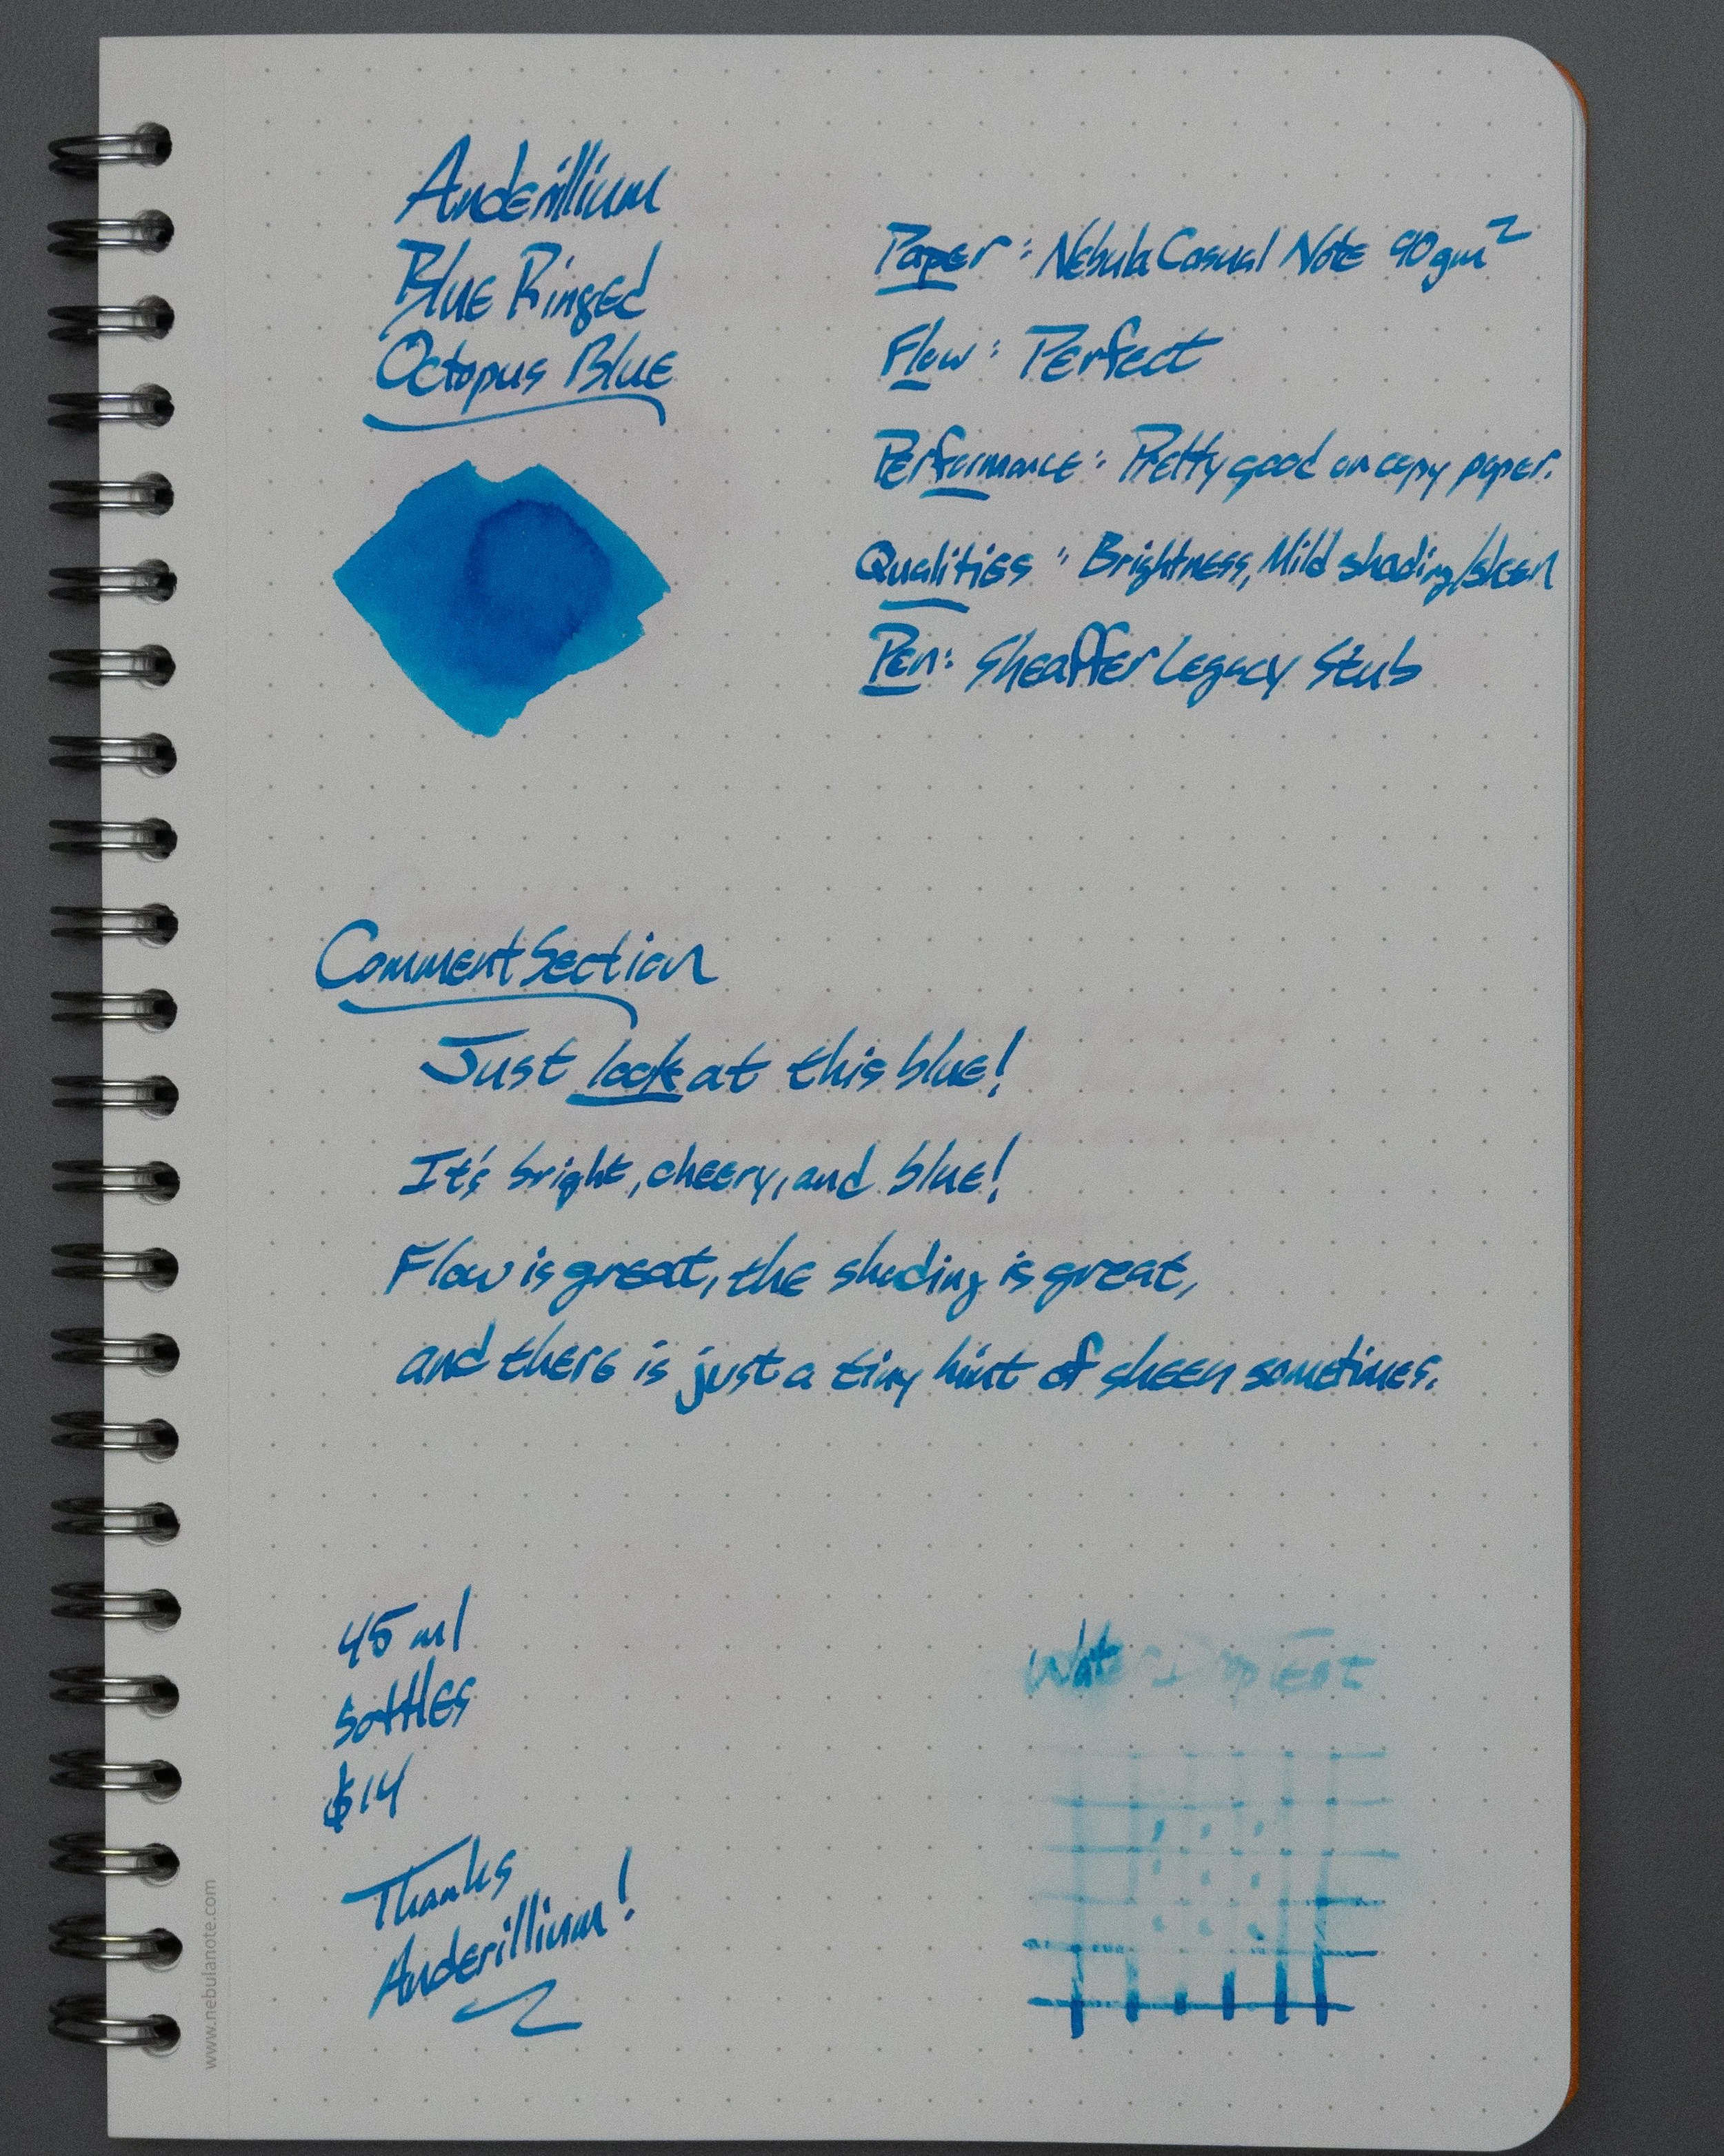 Anderillium
Blue Ringed
Octopus Blue
Paper: Nebula Casual Note 90gm²
Flow: Perfect
Performance: Pretty good on copy paper.
Qualities: Brightness, Mild shading/sheen
Pen: Sheaffer Legacy Stub
Comment Section
Just look at this blue!
It's bright, cheery, and blue!
Flow is great, the shading is great,
and there is just a tiny hint of sheen sometimes.
45 ml
bottles
$14
Thanks
Anderillium!
Water Drop Test
www.nebulanote.com